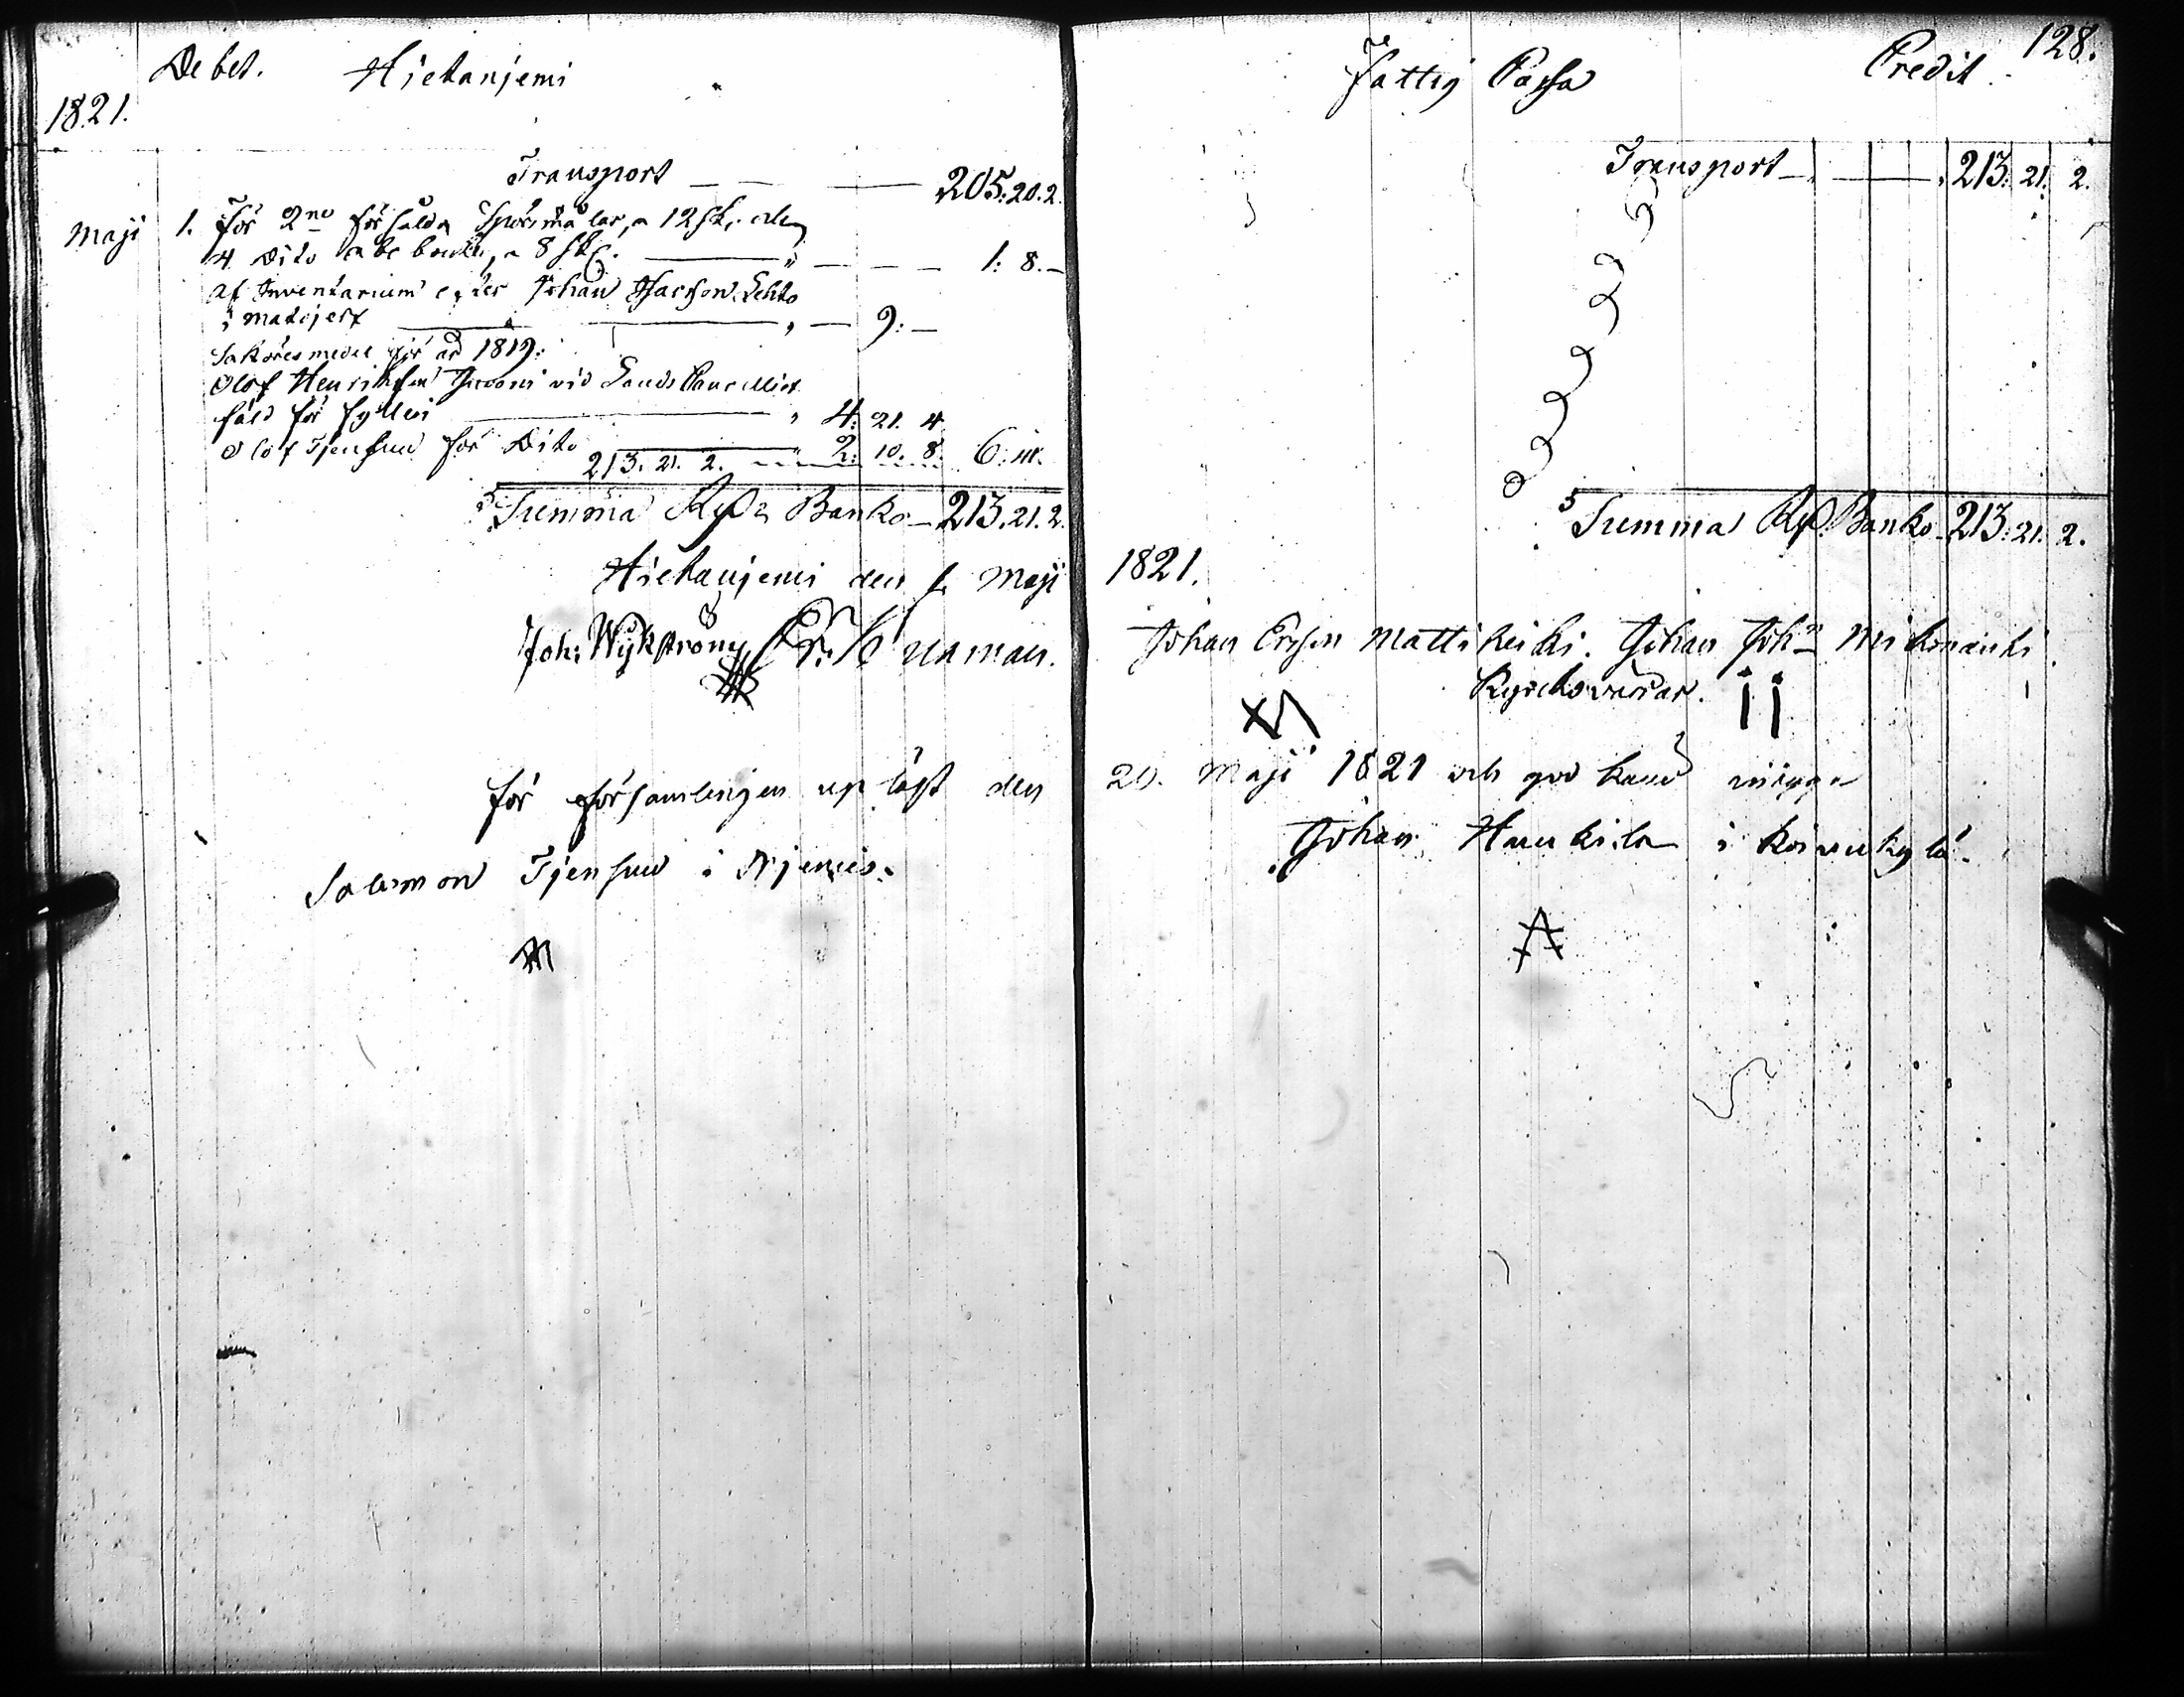 Debet. Hietanjemi
1821.
Transport 205:20.2.
Maji 1. För 2ne försålda Spörsmålar, a 12 sk,
4 Dito abc , a 8 sk. 1: 8.—
Af Inventarium efter Johan Isacsson Lehto
i Matojerf 9:—
Saköresmedel för år 1819:
Olof Henriksson vid Lands Cancelliet
fäld för fylleri 4: 21. 4.
Olof Tjensuu för Dito 2: 10. 8. 6:
213. 21. 2.
Summa Rd Banko 213.21.2.
Hietanjemi den 1. Maji
Joh: Wykström Er. Kunaman.
för församlingen upläst den
Salomon Tjensuu i Njemis.
Fattig Cassa Credit 128.
Transport 213. 21. 2.
Summa Rd Banko 213. 21. 2.
1821.
Johan Ersson Matti Heiki. Johan Johsn
Kyrckovärdar.
20. Maji 1821 och god känd
Johan Haukila i Koivukylä.